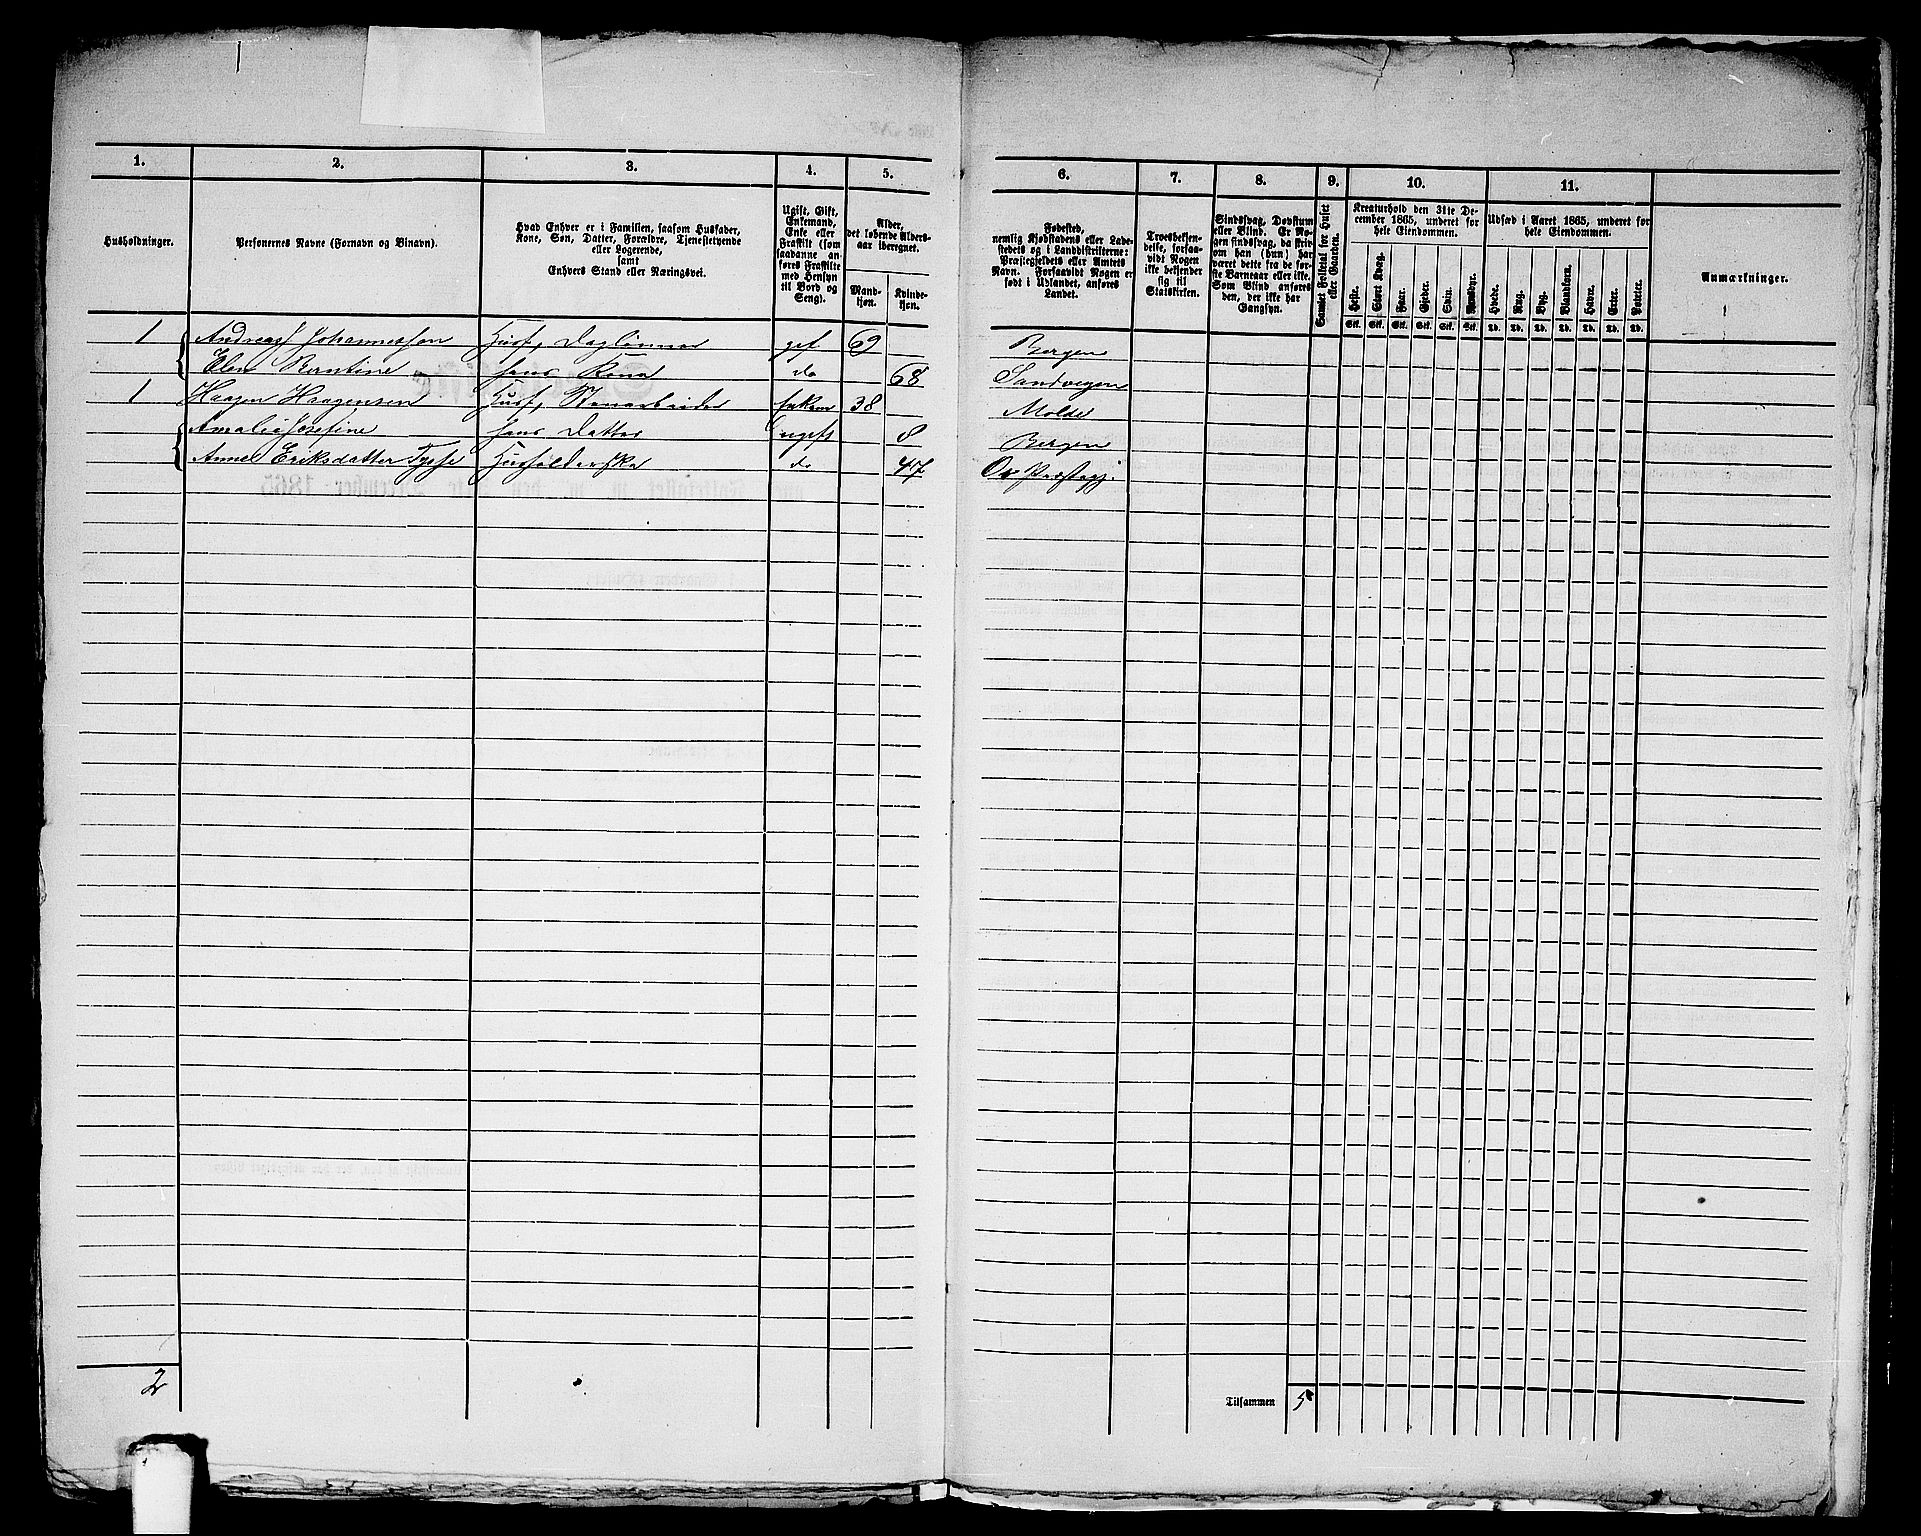 1. 2. 3. 4. 5. 6. 7. 8. 9. 10. 11.
Husholdninger.
Personernes Navne (Fornavn og Binavn).
Hvad Enhver er i Familien, saasom Husfader,
Kone, Søn, Datter, Forældre, Tjenestetyende
eller Logerende,
samt
Enhvers Stand eller Næringsvei.
Ugift, Gift,
Enkemand,
Enke eller
Fraskilt (som
saadanne an-
føres Fraskilte
med Hensyn
til Bord og
Seng).
Alder,
det løbende Alders-
aar iberegnet.
Mand-
kjøn.
Kvinde-
kjøn.
Fødested,
nemlig Kjøbstadens eller Lade-
stedets og i Landdistrikterne:
Præstegjeldets eller Amtets
Navn. Forsaavidt Nogen er
født i Udlandet, anføres
Landet.
Troesbekjen-
delse, forsaa-
vidt Nogen
ikke bekjender
sig til
Statskirken.
Sindssvag, Døvstum
eller Blind. Er No-
gen sindssvag, da skriv
om han (hun) har
været dette fra de før-
ste Barneaar eller ikke.
Som Blind anføres
den, der ikke har
Gangsyn.
Samlet Folketal for Huset
eller Gaarden.
Kreaturhold den 31te De-
cember 1865, underet for
hele Eiendommen.
Heste. Stort Kvæg. Faar. Gjeder. Svin. Rensdyr.
Stk. Stk. Stk. Stk. Stk. Stk.
Udsæd i Aaret 1865, underet for
hele Eiendommen.
Hvede. Rug. Byg. Blandkorn. Havre. Erter. Poteter.
Td. Td. Td. Td. Td. Td. Td.
Anmærkninger.
1 Andreas Johannessen Husf, Daglønner gif 69 Bergen
Elen Berntine hans Kone do 68 Sandvigen
1 Haagen Haagensen Husf, Bomarbeider Enkem 38 Molde
Amalie Josefine hans Datter ugift 8 Bergen
Anne Eriksdatter Husholderske do 47 Præstegj.
2
Tilsammen 5